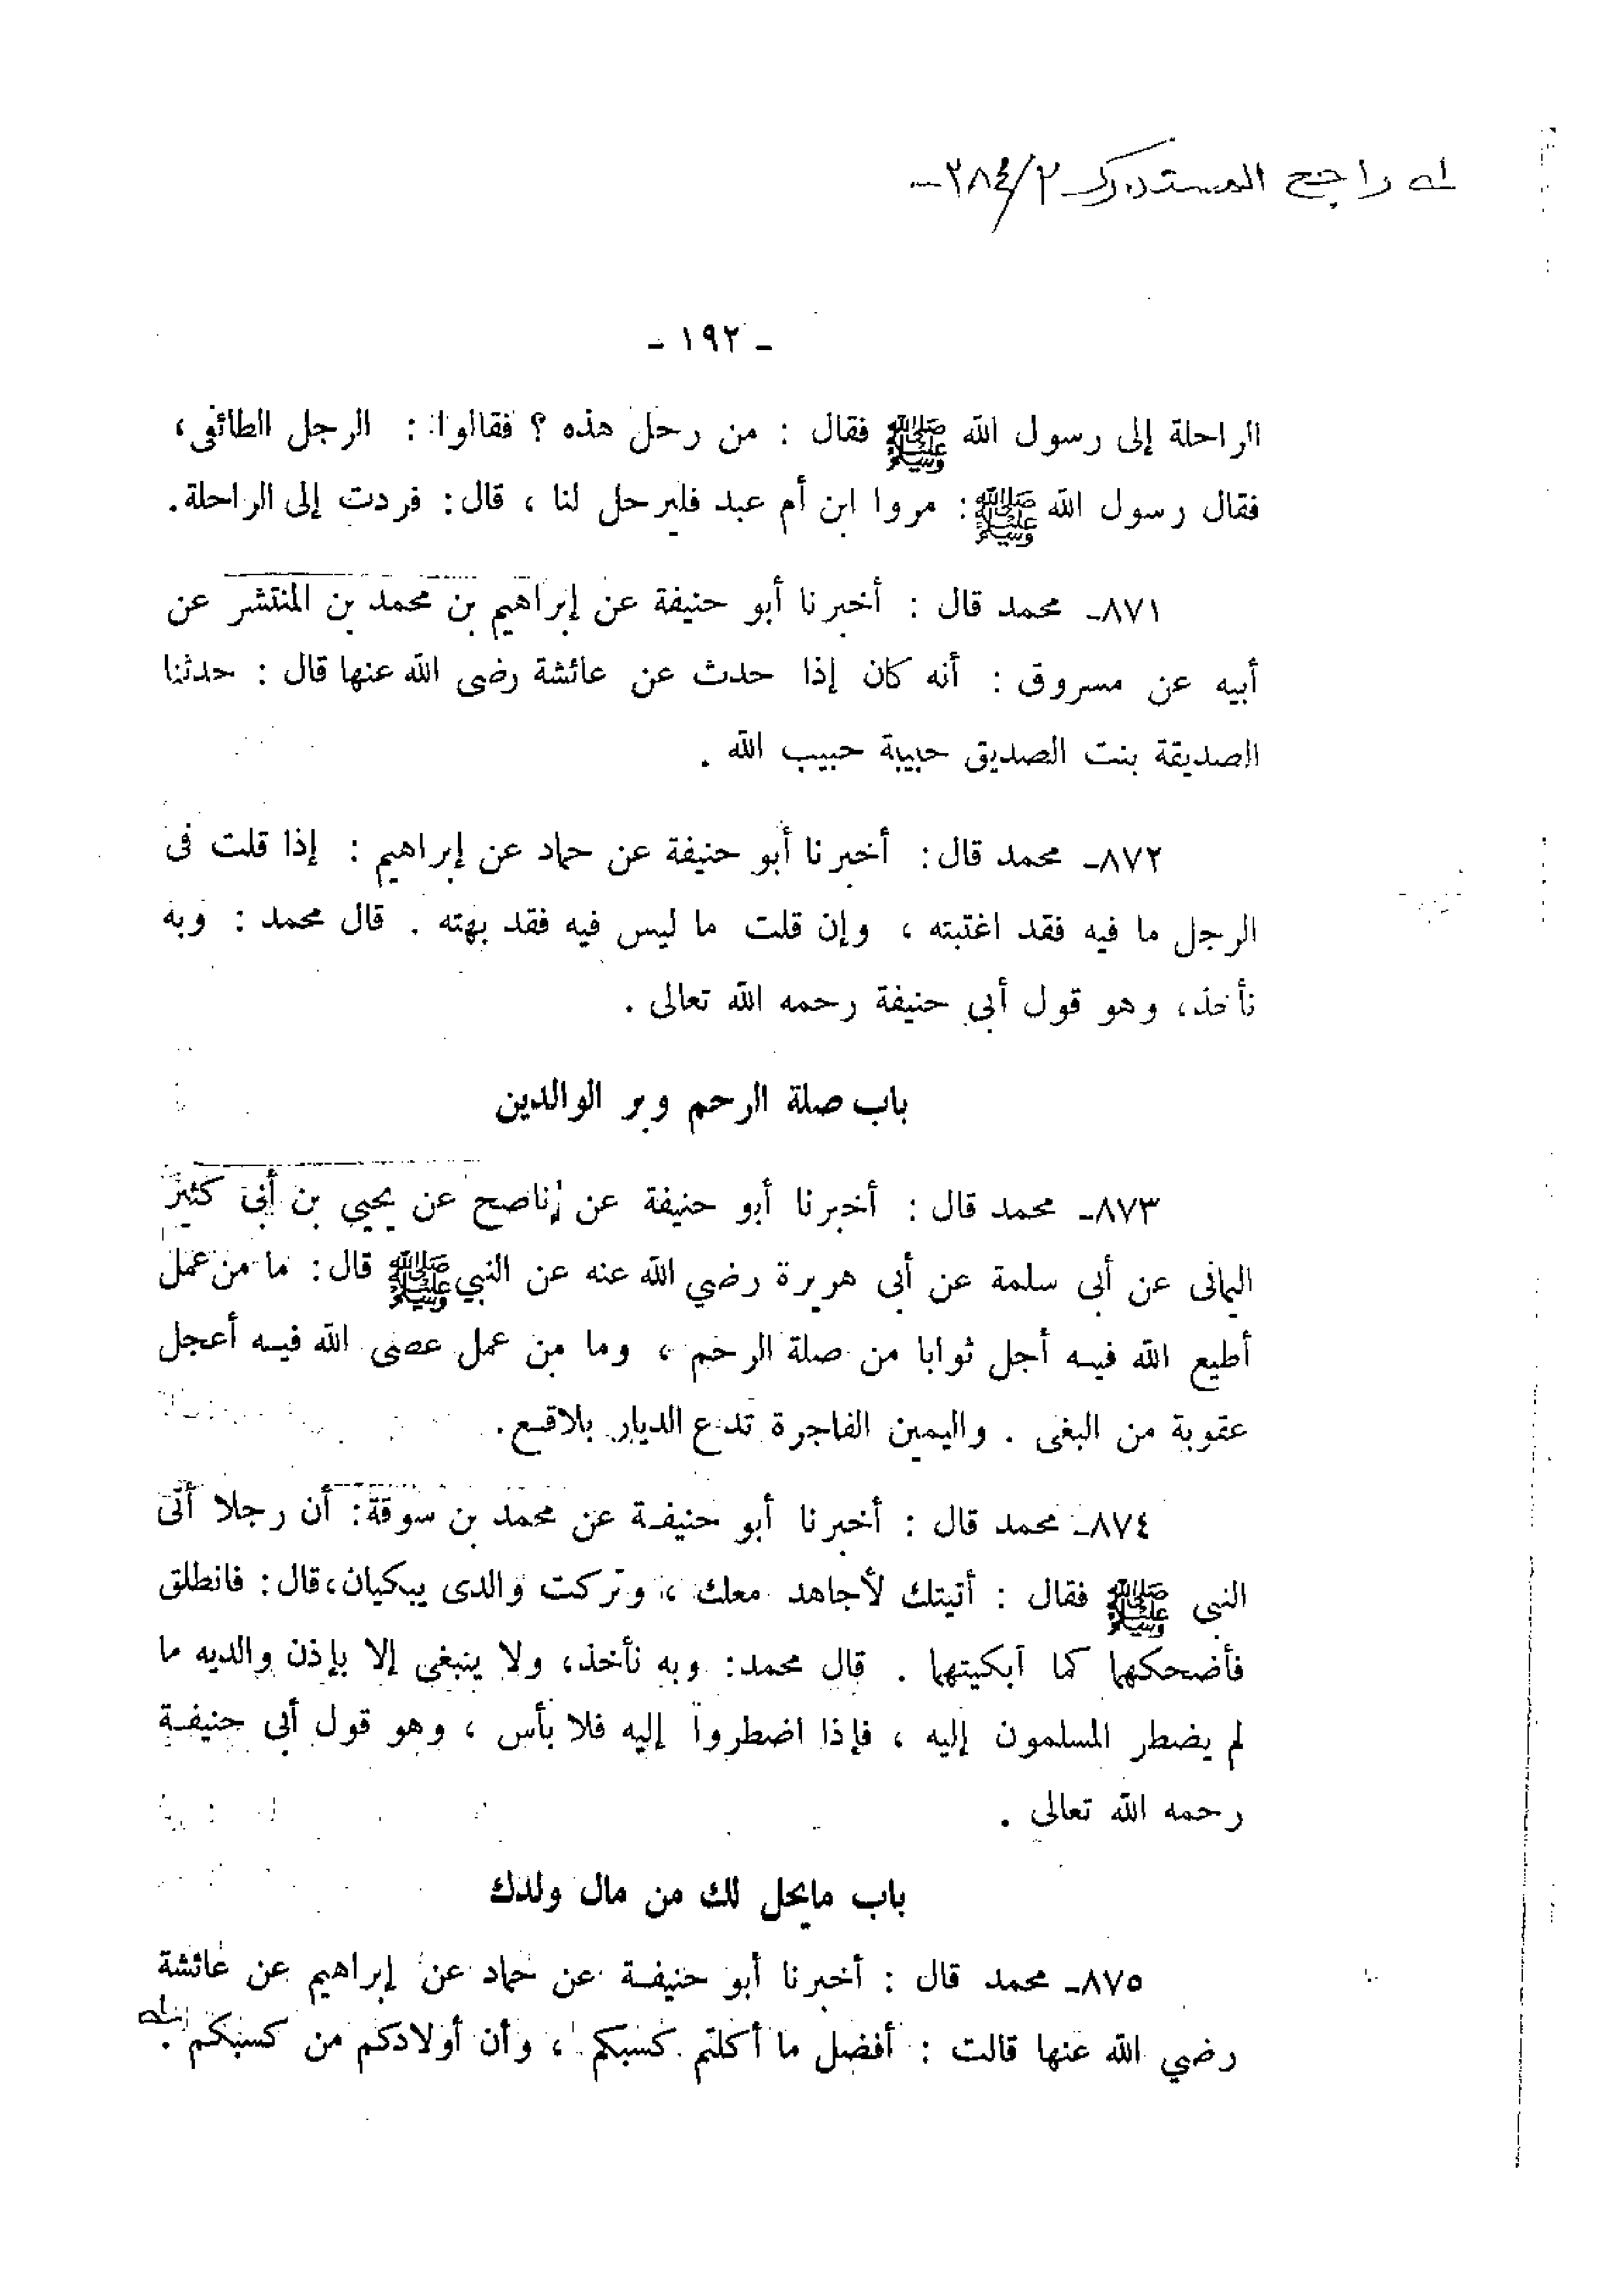 له راجع المستدرك ٢٨٤/٢-
- ١٩٢ -
الراحلة إلى رسول الله ﷺ فقال : من رحل هذه ؟ فقالوا : الرجل الطائفى ،
فقال رسول الله ﷺ : مروا ابن أم عبد فليرحل لنا ، قال : فردت إلى الراحلة.
٨٧١- محمد قال : أخبرنا أبو حنيفة عن إبراهيم بن محمد بن المنتشر عن
أبيه عن مسروق : أنه كان إذا حدث عن عائشة رضى الله عنها قال : حدثنا
الصديقة بنت الصديق حبيبة حبيب الله .
٨٧٢- محمد قال : أخبرنا أبو حنيفة عن حماد عن إبراهيم : إذا قلت فى
الرجل ما فيه فقد اغتبته ، وإن قلت ما ليس فيه فقد بهته . قال محمد : وبه
نأخذ، وهو قول أبى حنيفة رحمه الله تعالى .
باب صلة الرحم وبر الوالدين
٨٧٣- محمد قال : أخبرنا أبو حنيفة عن ناصح عن يحيي بن أبى كثير
اليمانى عن أبى سلمة عن أبى هريرة رضي الله عنه عن النبي ﷺ قال : ما من عمل
أطيع الله فيه أجل ثوابا من صلة الرحم ، وما من عمل عصى الله فيه أعجل
عقوبة من البغى . واليمين الفاجرة تدع الديار بلاقع.
٨٧٤- محمد قال : أخبرنا أبو حنيفة عن محمد بن سوقة : أن رجلا أتى
النبى ﷺ فقال : أتيتك لأجاهد معك ، وتركت والدى يبكيان، قال : فانطلق
فأضحكهما كما أبكيتهما . قال محمد : وبه نأخذ، ولا ينبغى إلا بإذن والديه ما
لم يضطر المسلمون إليه ، فإذا اضطروا إليه فلا بأس ، وهو قول أبى حنيفة
رحمه الله تعالى .
باب مايحل لك من مال ولدك
٨٧٥- محمد قال : أخبرنا أبو حنيفة عن حماد عن إبراهيم عن عائشة
رضي الله عنها قالت : أفضل ما أكلتم كسبكم ، وأن أولادكم من كسبكم . له